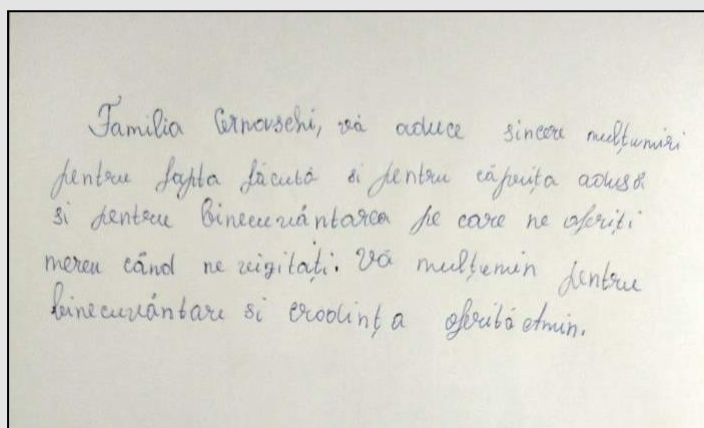 Familia Cernovschi, vă aduce sincere mulțumiri
pentru fapta făcută si pentru căprița adusă
si pentru binecuvântarea pe care ne oferiți
mereu când ne vizitați. Vă mulțumin pentru
binecuvântare si crodința oferită amin.